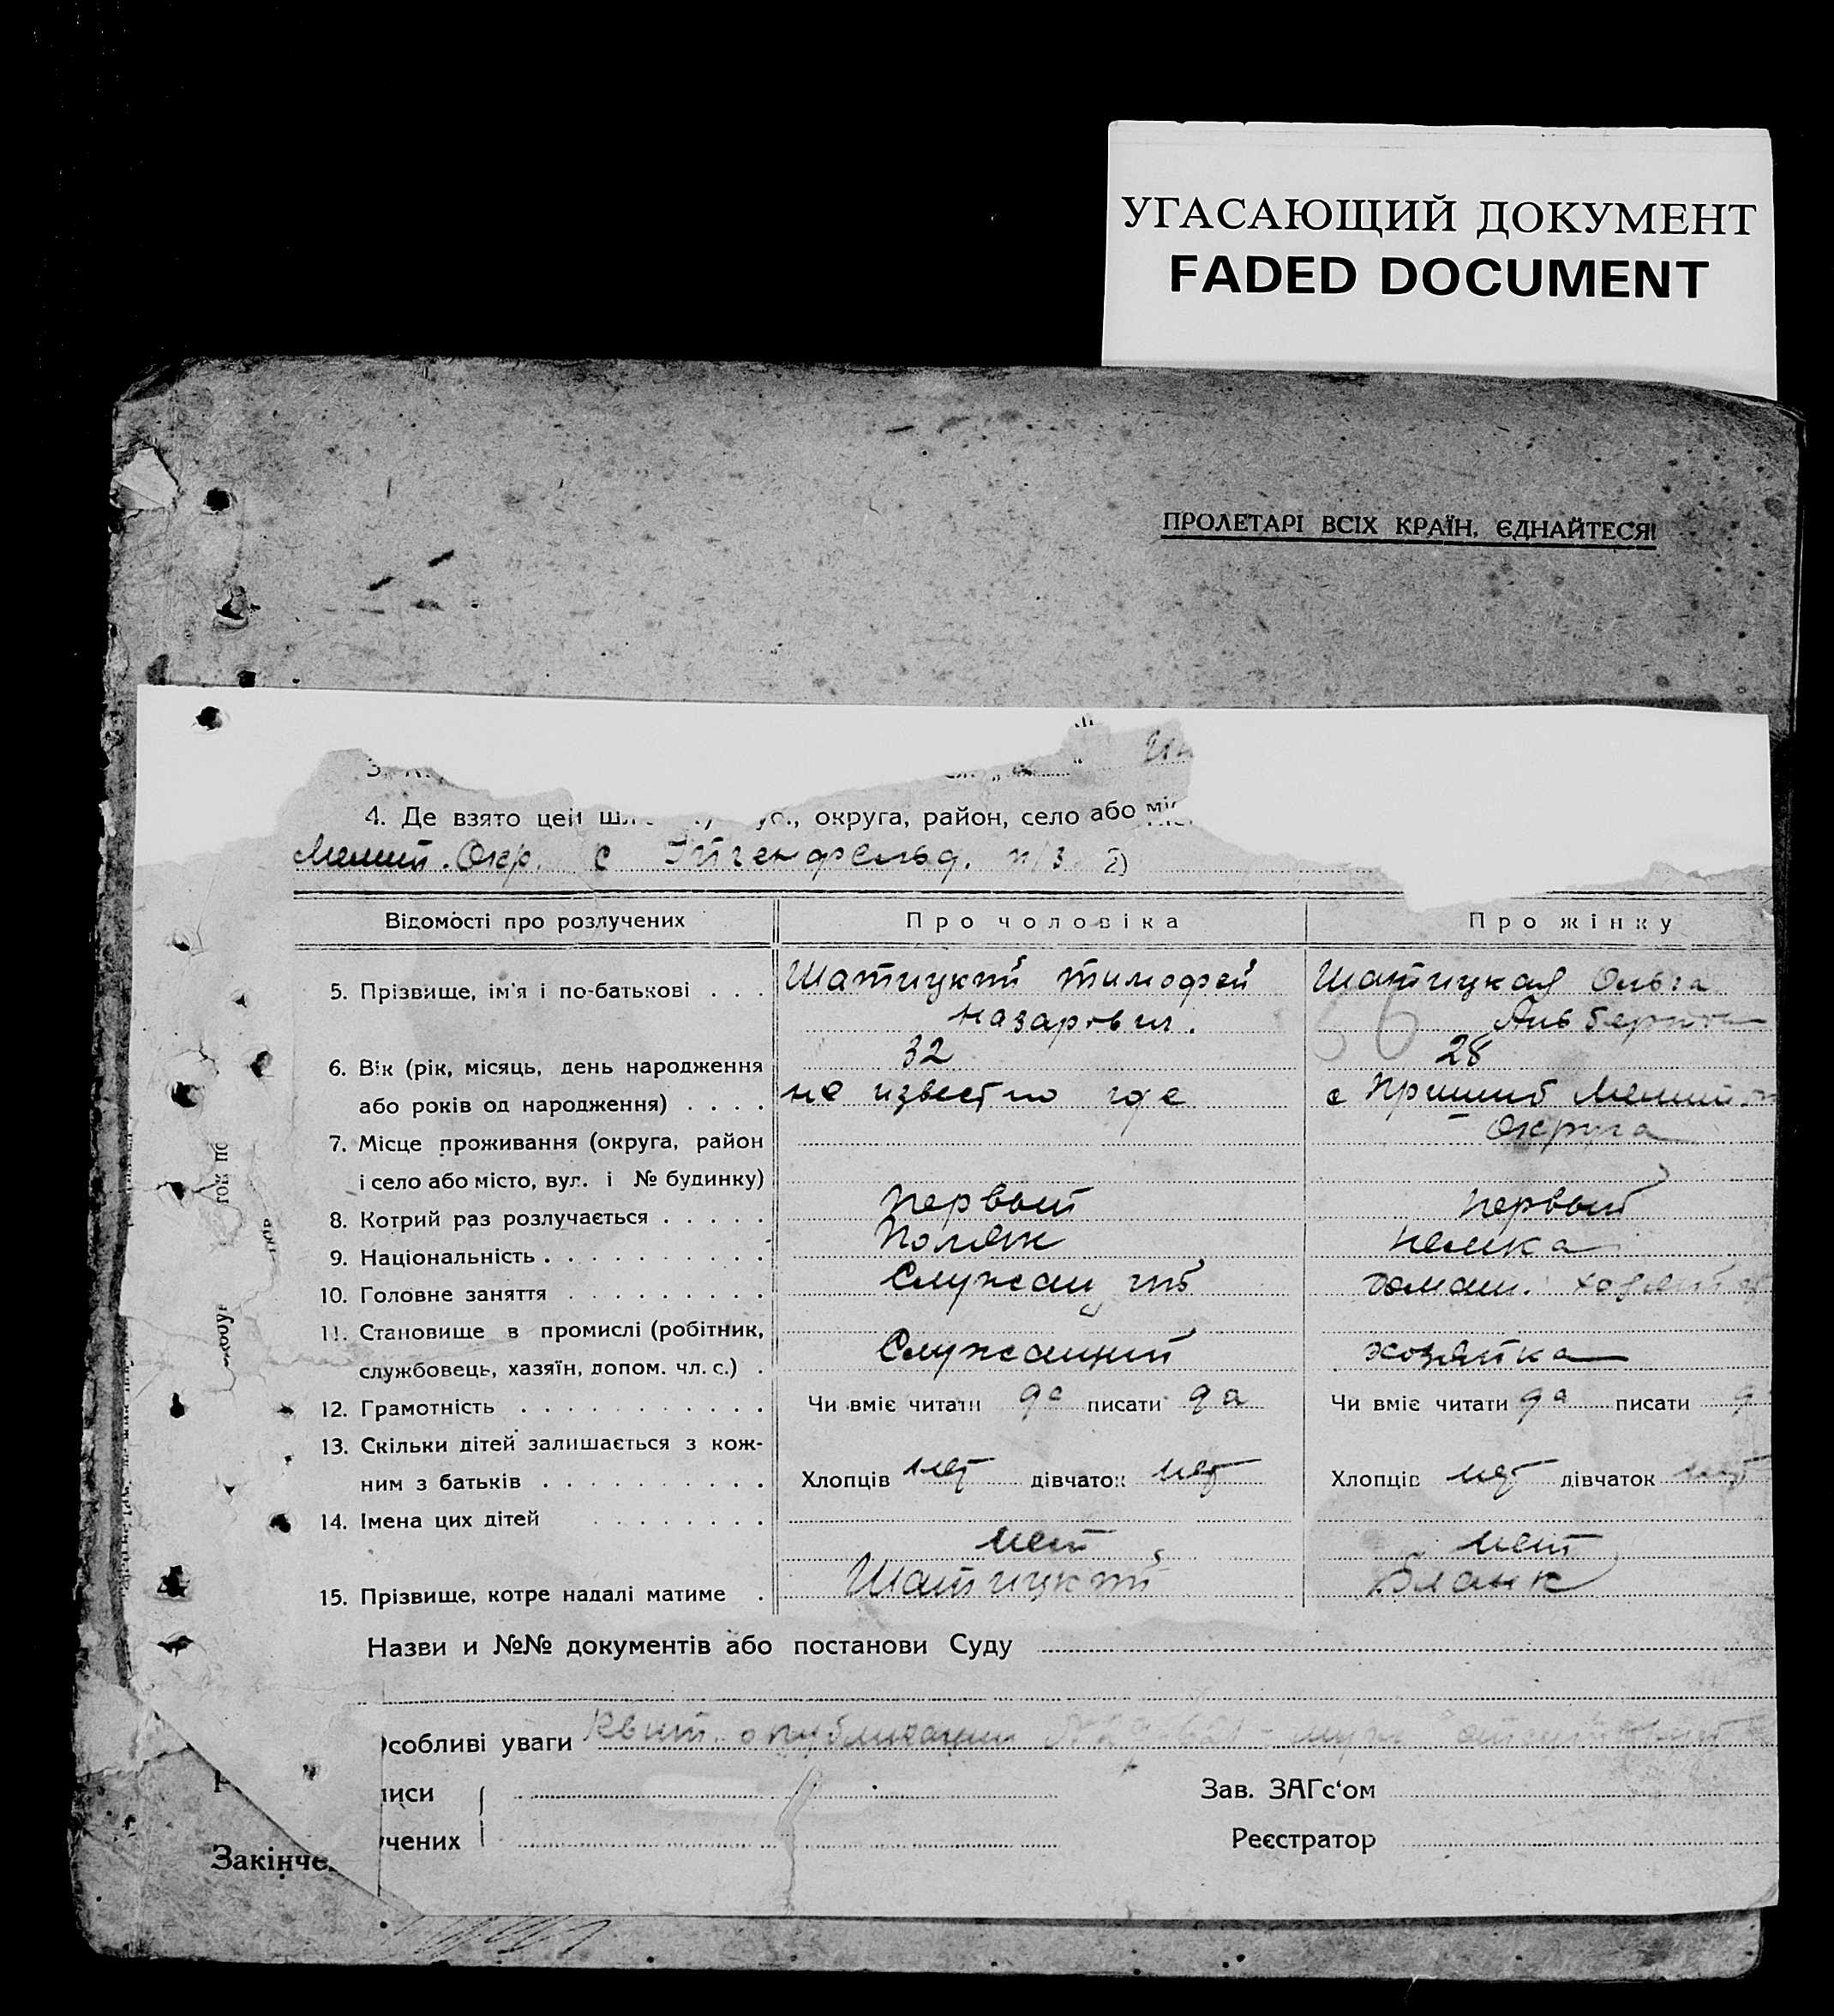 УГАСАЮЩИЙ ДОКУМЕНТ
FADED DOCUMENT
ПРОЛЕТАРІ ВСІХ КРАЇН, ЄДНАЙТЕСЯ!
4. Де взято цей округа, район, село або
Окр. с п/з 2)
Відомості про розлучених Про чоловіка Про жінку
5. Прізвище, ім'я і по-батькові . . . Шатицкий Тимофей Шатицкая Ольга
Назарович.
6. Вік (рік, місяць, день народження 32 28
або років од народження) . . . . не известно где с Пришиб
7. Місце проживання (округа, район Округа
і село або місто, вул. і № будинку)
8. Котрий раз розлучається . . . . . первый первый
9. Національність . . . . . . . . . Поляк Немка
10. Головне заняття . . . . . . . . . домаш.
11. Становище в промислі (робітник,
службовець, хазяїн, допом. чл. с.) . Служащий хозяйка
12. Грамотність . . . . . . . . . . . Чи вміє читати да писати да Чи вміє читати да писати
13. Скільки дітей залишається з кож-
ним з батьків . . . . . . . . . . Хлопців нет дівчаток нет Хлопців нет дівчаток нет
14. Імена цих дітей . . . . . . . .
нет нет
15. Прізвище, котре надалі матиме . Шатицкий Бланк
Назви и №№ документів або постанови Суду
собливі уваги Квит. о публикации
иси Зав. ЗАГс'ом
чених Реєстратор
Закінче